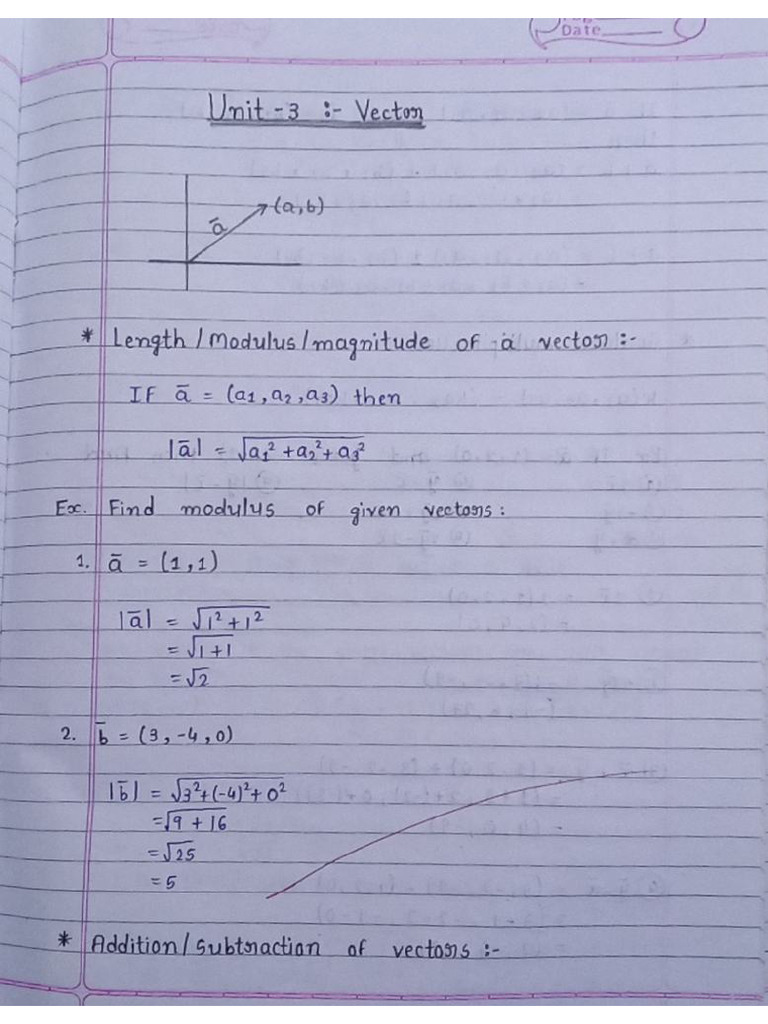 Date
Unit-3 :- Vector
(a,b)
ā
* Length/Modulus/magnitude of a vector :-
If ā = (a₁, a₂, a₃) then
|ā| = √a₁² + a₂² + a₃²
Ex. Find modulus of given vectors :
1. ā = (1,1)
|ā| = √1² + 1²
= √1+1
= √2
2. b̄ = (3, -4, 0)
|b̄| = √3²+(-4)²+0²
= √9 + 16
= √25
= 5
* Addition/subtraction of vectors :-